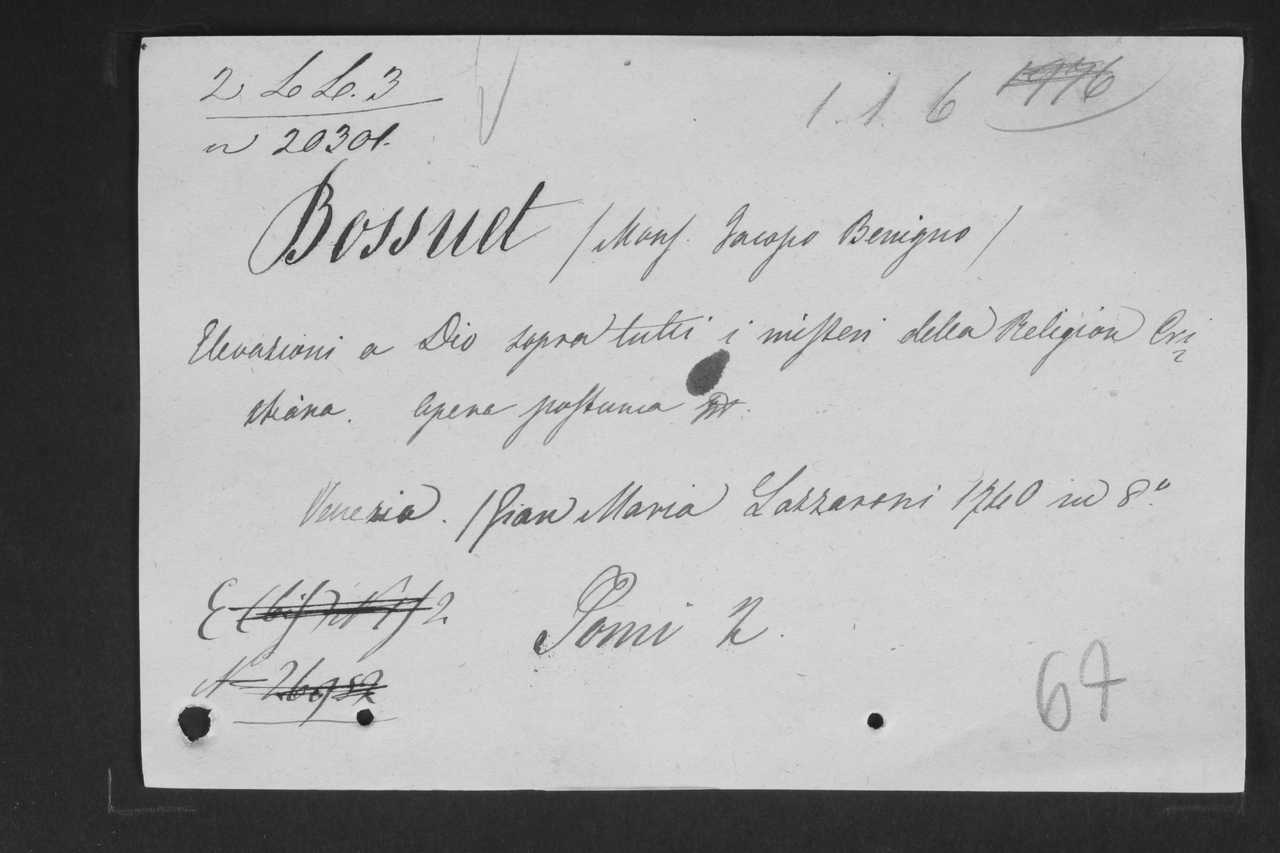 2 LL. 3
1. 1. 6 1776
n 20301.
Bossuet (Mons. Jacopo Benigno)
Elevazioni a Dio sopra tutti i misteri della Religion Cri=
stiana. Opera postuma
Venezia. Gian Maria Lazzaroni 1740 in 8.º
E 2
Tomi 2.
67